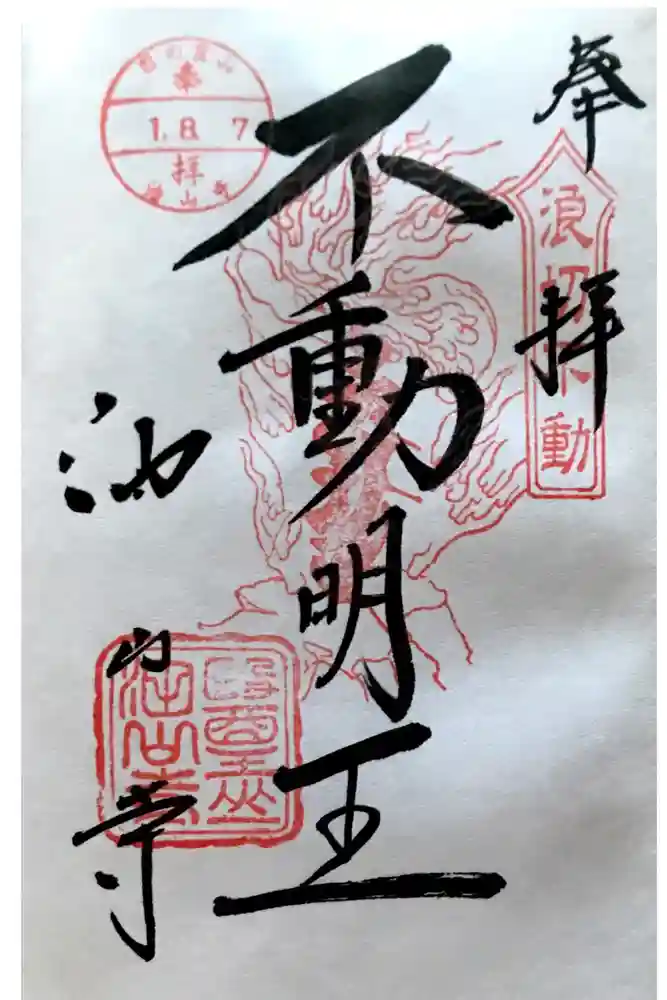 奉拝
浪切不動
不動明王
池山寺
奉
1.8.7
拝